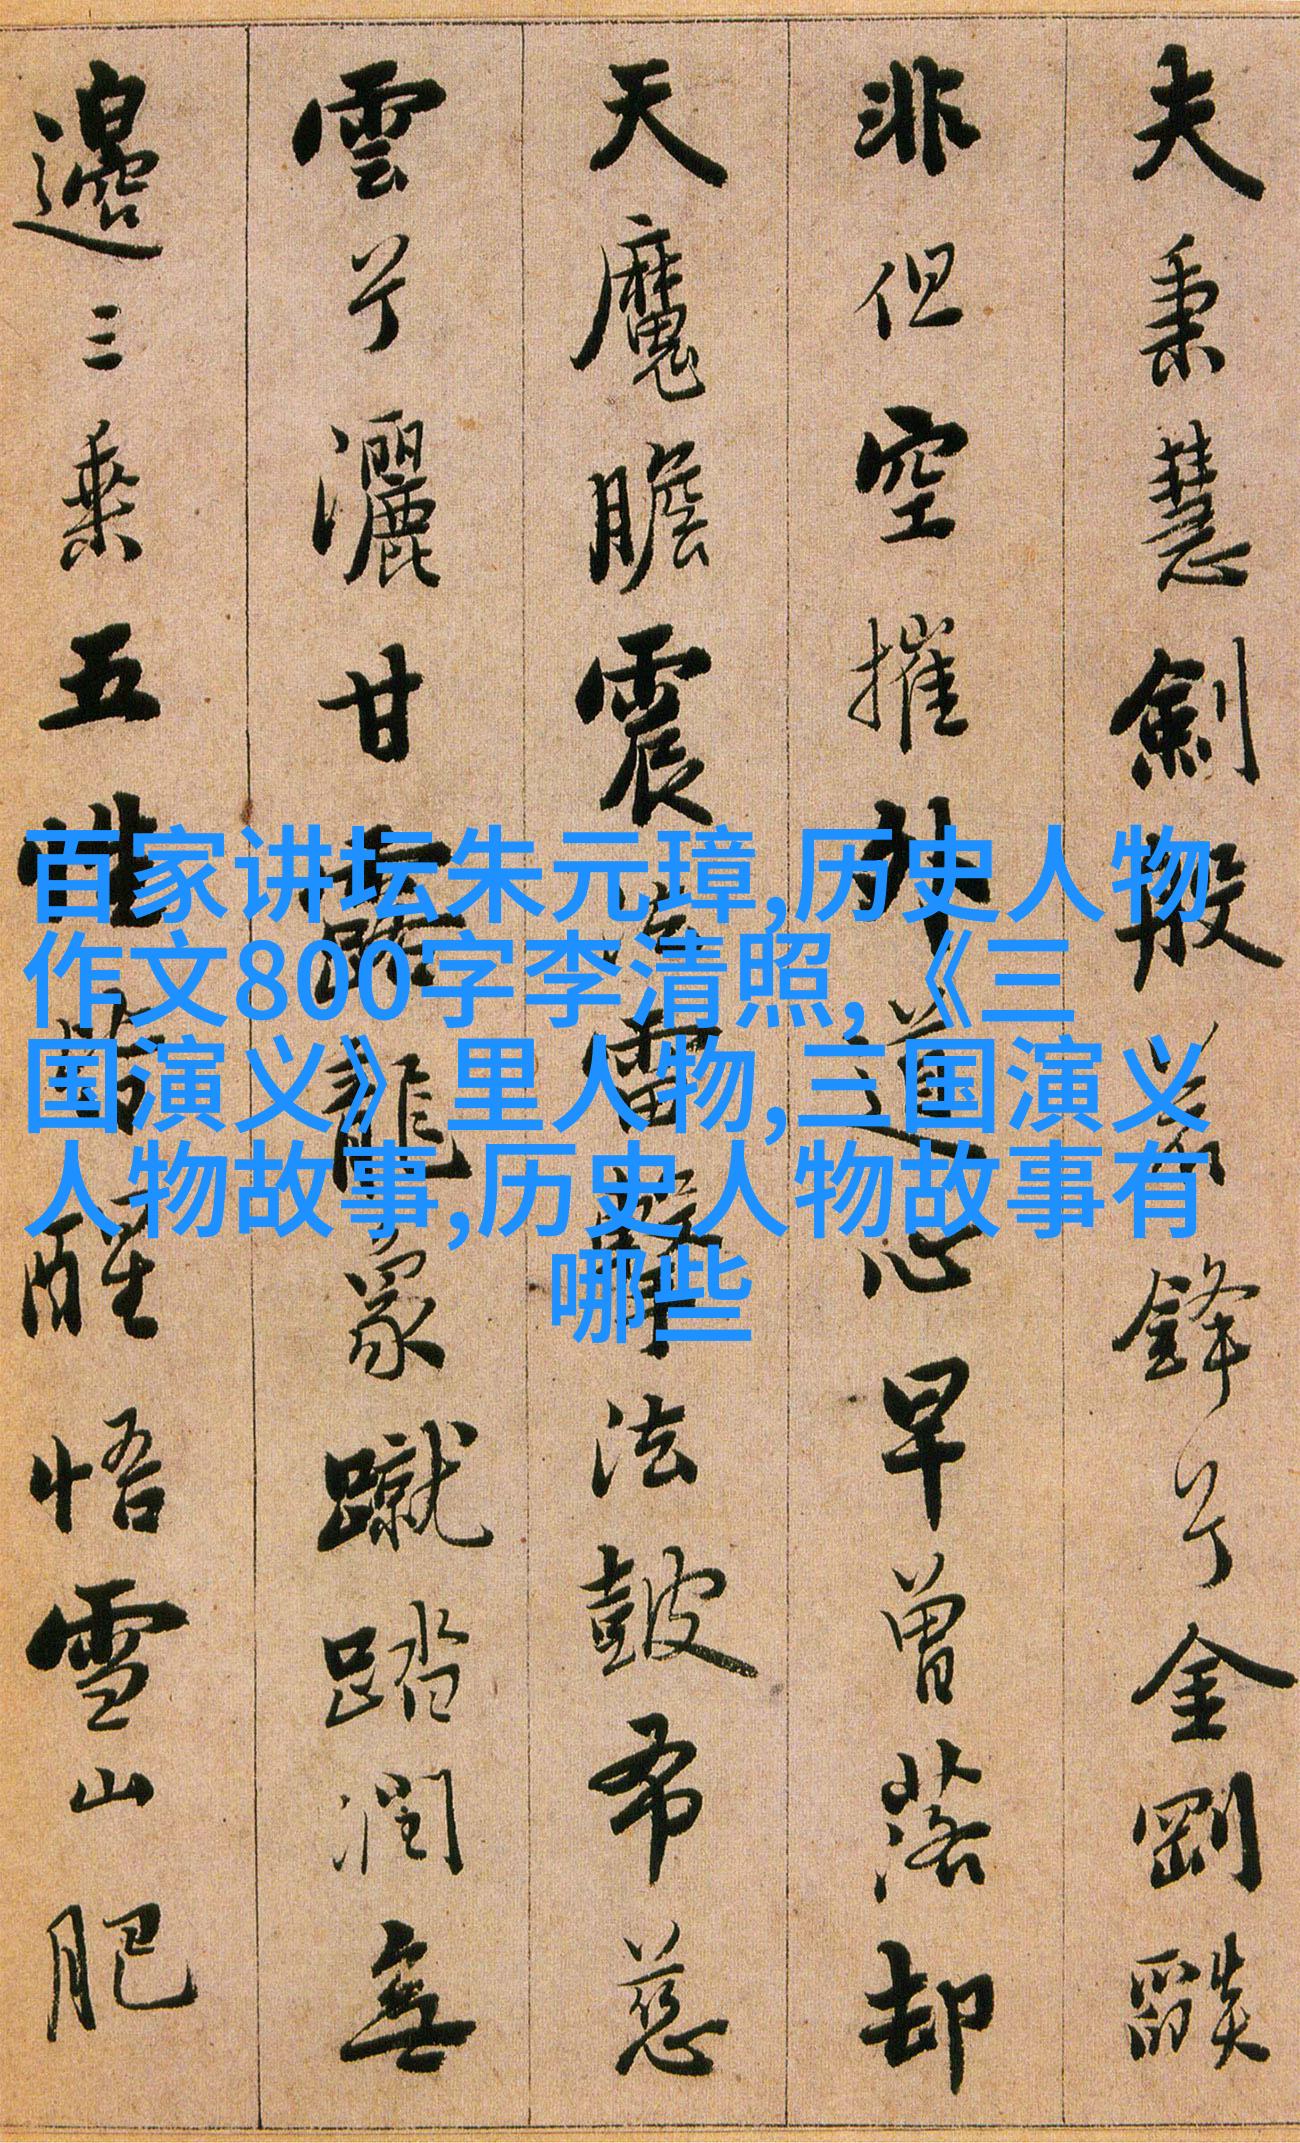 夫秉慧劍般若鋒兮金剛燄
非但空摧外道心早曾落却
天魔膽震法雷擊法鼓布慈
雲兮灑甘露龍象蹴踏潤無
邊三乘五性皆醒悟雪山肥
百家讲坛朱元璋,历史人物
作文800字李清照,《三
国演义》里人物,三国演义
人物故事,历史人物故事有
哪些